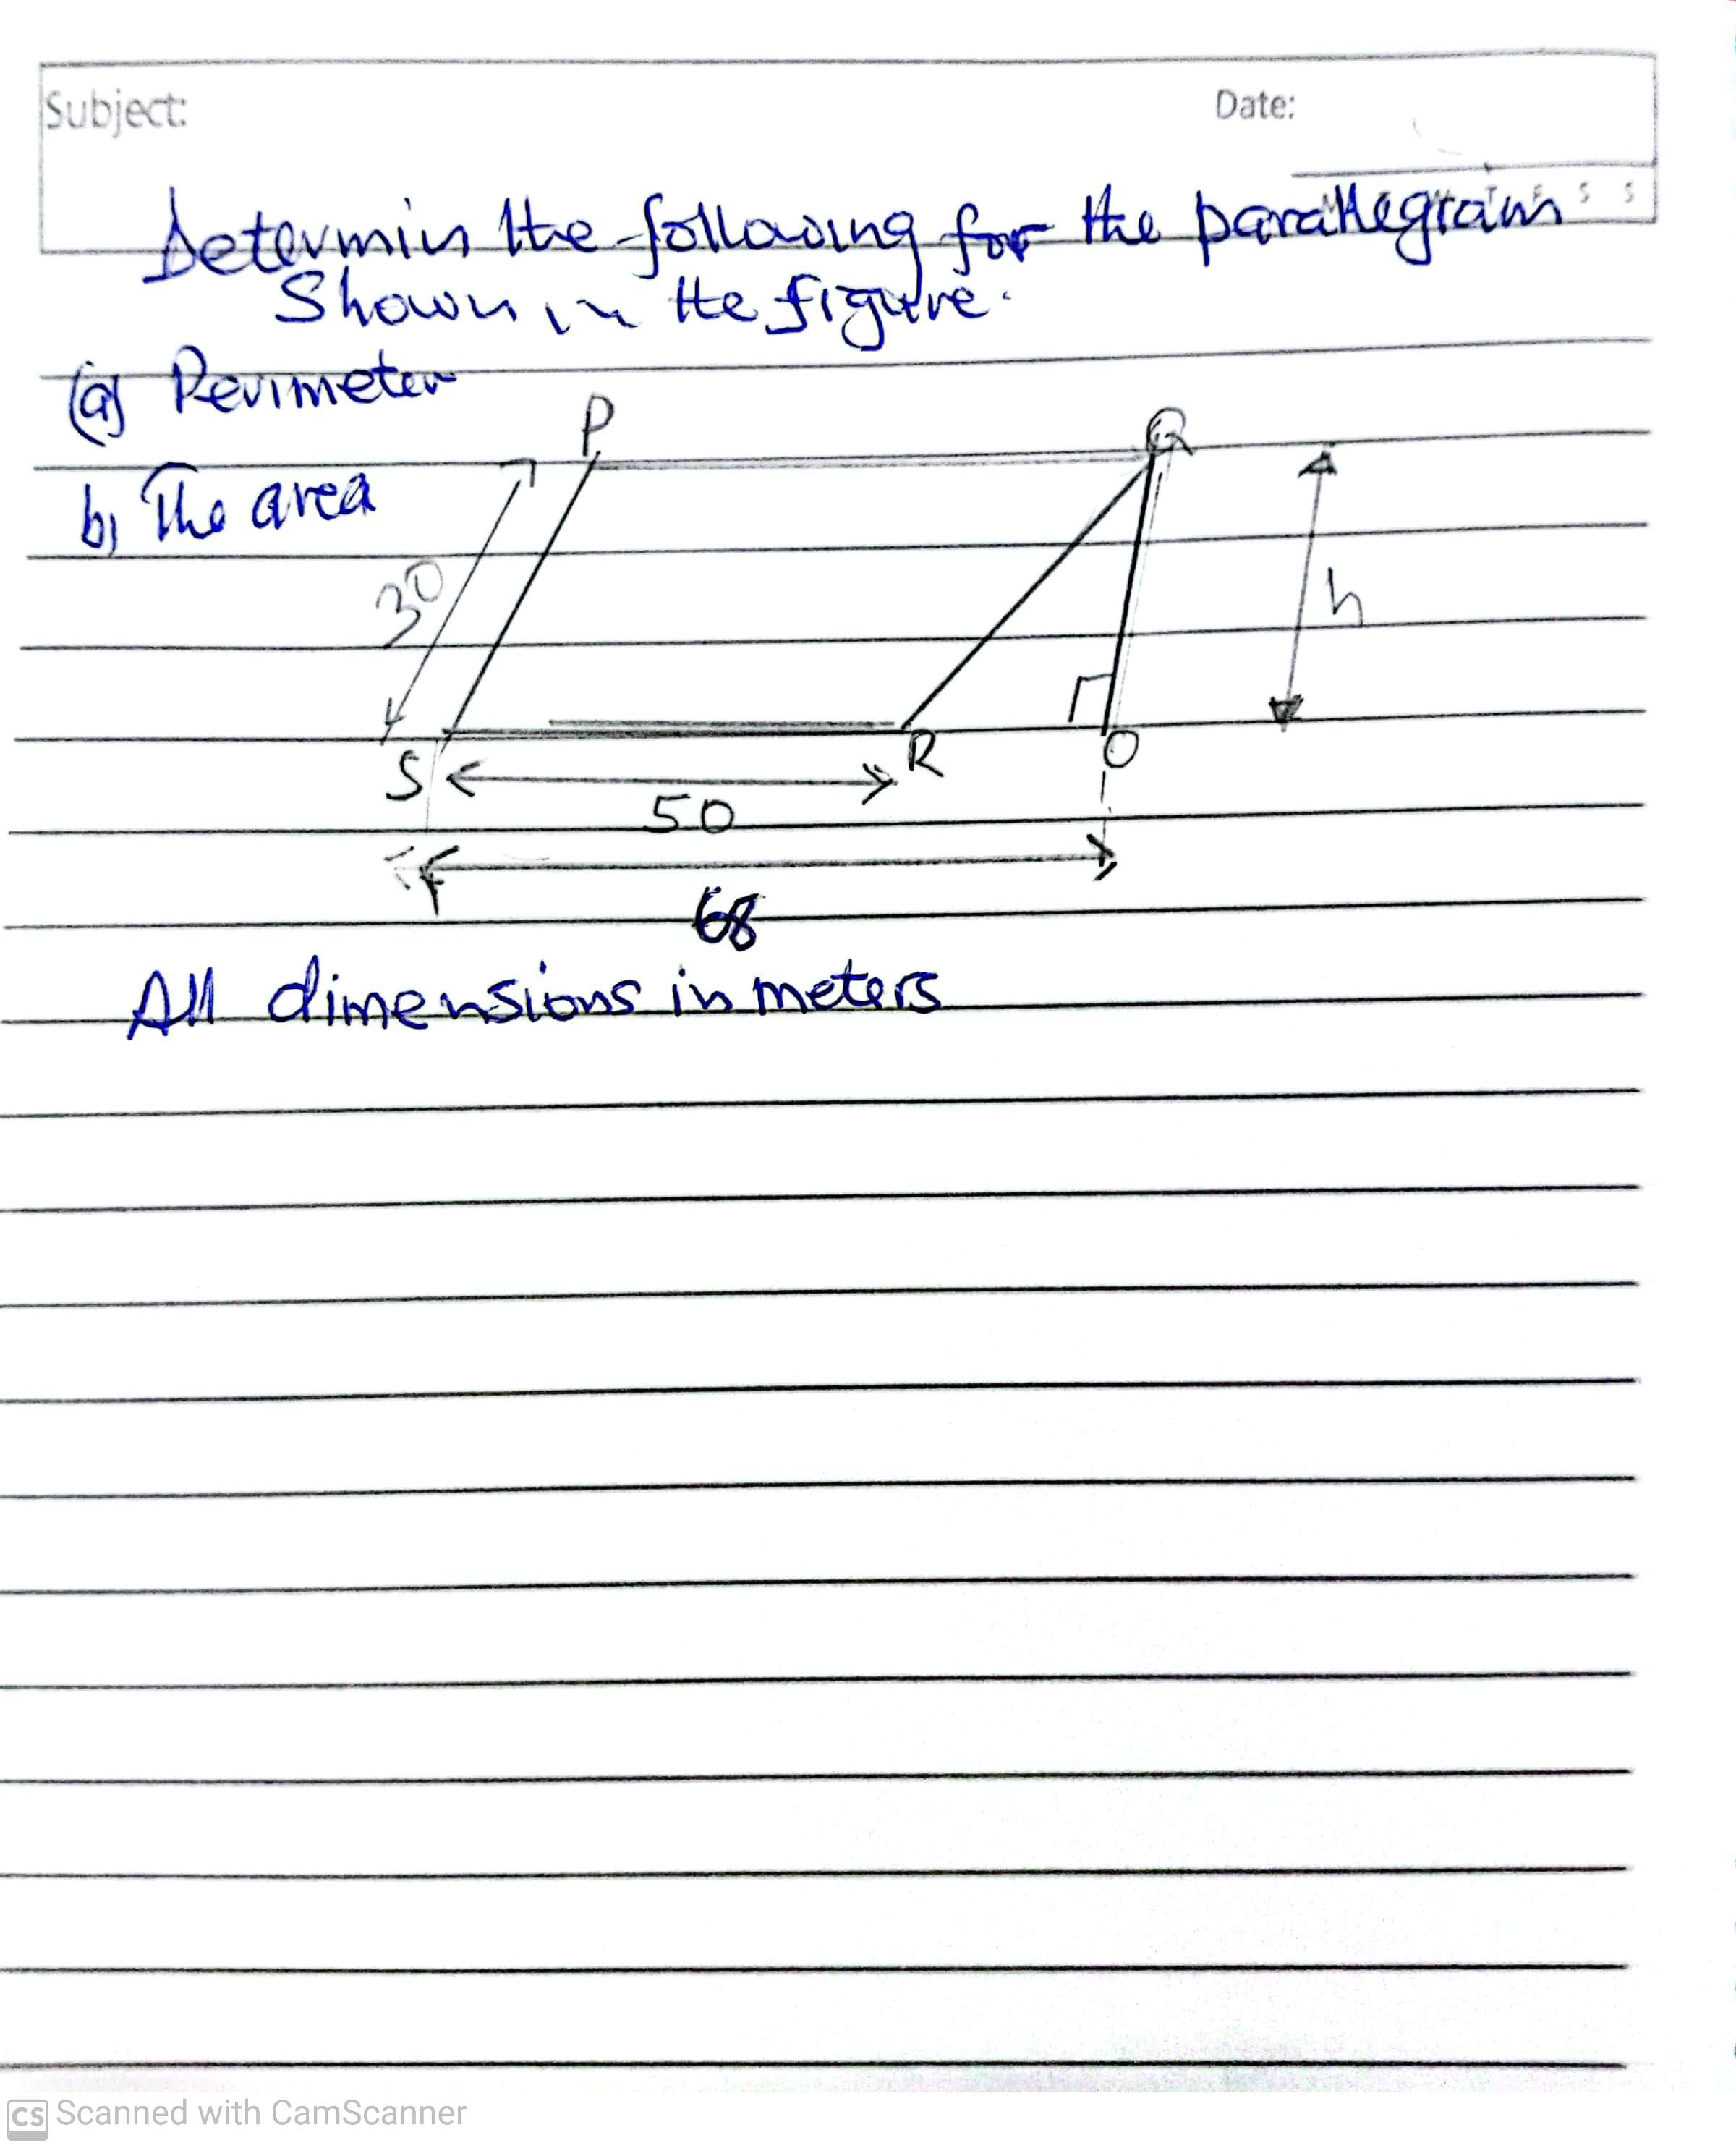 Subject:
Date:
Determin the following for the parallegram
Shown in the figure.
(a) Perimeter
P
Q
b) The area
30
h
S
R
O
50
68
All dimensions in meters
CS Scanned with CamScanner